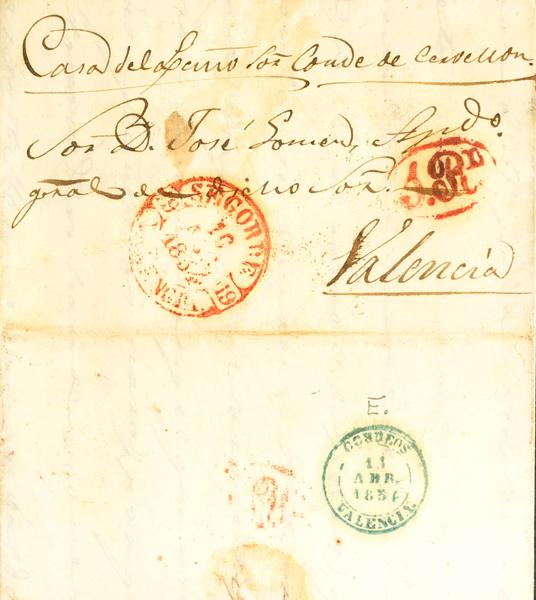 Casa del Excmo Sor Conde de Cervellon.
Sor D. José Gomez, Apdo.
genal de dicho Sor.
1Rn
SEGORBE
10
185
VALENCIA
Valencia
E.
CORREOS
11
ABR.
1854
VALENCIA.